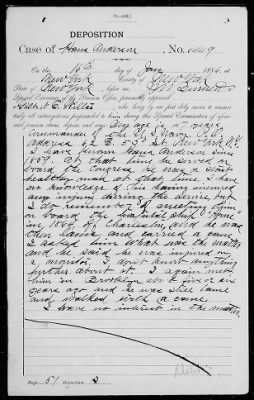 DEPOSITION
Case of Hans Anderson, No.
On this 16 day of Jan, 1894, at
New York, County of New York
State of New York, before me,
Special Examiner of the Pension Office, personally appeared
who, being by me first duly sworn to answer
truly all interrogatories propounded to him during this Special Examination of aforesaid
pension claim, deposes and says: My age is
Commander of the U. S. Navy
address 42 E. 53 St. New York N.Y.
I have known Hans Anderson since
1859. At that time he served on
board the Congress. He was a stout
healthy man at that time. I have
no knowledge of his having incurred
any injury during the service but
I do remember of meeting him
on board the hospital ship
in 186 off Charleston, and he was
then lame and carried a cane
I asked him what was the matter
and he said he was injured on
a monitor. I don't know anything
further about it. I again met
him in Brooklyn about five or six
years ago and he was still lame
and walked with a cane.
I have no interest in the matter.
Page 51 Deposition